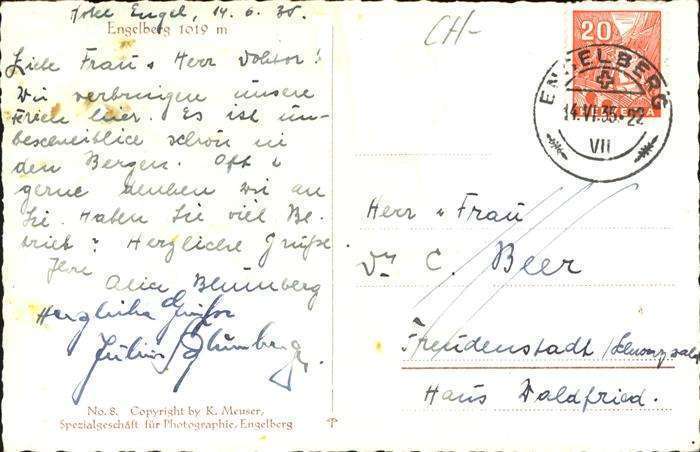 Hotel Engel, 14. 6. 35.
Engelberg 1019 m
Liebe Frau u Herr Doktor!
Wir verbringen unsere
Ferien hier. Es ist un-
bescheiblice schön in
den Bergen. Oft u
gerne denken wir an
Sie. Haben Sie viel Be-
trieb? Herzliche Grüße
Ihre
Alice Blumberg
Herzliche Grüße
Julius Blumberg.
No. 8. Copyright by K. Meuser,
Spezialgeschäft für Photographie, Engelberg
CH-
20
HELVETIA
ENGELBERG
14.VI.35.-22
VII
Herr u Frau
Dr C. Beer
Freudenstadt /Schwarzwald
Haus Waldfried.